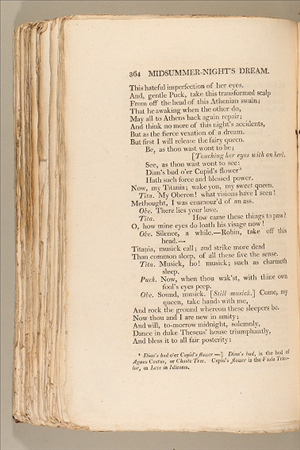 364 MIDSUMMER-NIGHT'S DREAM.
This hateful imperfection of her eyes.
And, gentle Puck, take this transformed scalp
From off the head of this Athenian swain;
That he awaking when the other do,
May all to Athens back again repair;
And think no more of this night's accidents,
But as the fierce vexation of a dream.
But first I will release the fairy queen.
Be, as thou wast wont to be;
[Touching her eyes with an herb.
See, as thou wast wont to see:
Dian's bud o'er Cupid's flower*
Hath such force and blessed power.
Now, my Titania; wake you, my sweet queen.
Tita. My Oberon! what visions have I seen!
Methought, I was enamour'd of an ass.
Obe. There lies your love.
Tita. How came these things to pass?
O, how mine eyes do loath his visage now!
Obe. Silence, a while.—Robin, take off this
head.—
Titania, musick call; and strike more dead
Than common sleep, of all these five the sense.
Tita. Musick, ho! musick; such as charmeth
sleep.
Puck. Now, when thou wak'st, with thine own
fool's eyes peep.
Obe. Sound, musick. [Still musick.] Come, my
queen, take hands with me,
And rock the ground whereon these sleepers be.
Now thou and I are new in amity;
And will, to-morrow midnight, solemnly,
Dance in duke Theseus' house triumphantly,
And bless it to all fair posterity:
* Dian's bud o'er Cupid's flower—] Dian's bud, is the bud of
Agnus Castus, or Chaste Tree. Cupid's flower is the Viola Trico-
lor, or Love in Idleness.